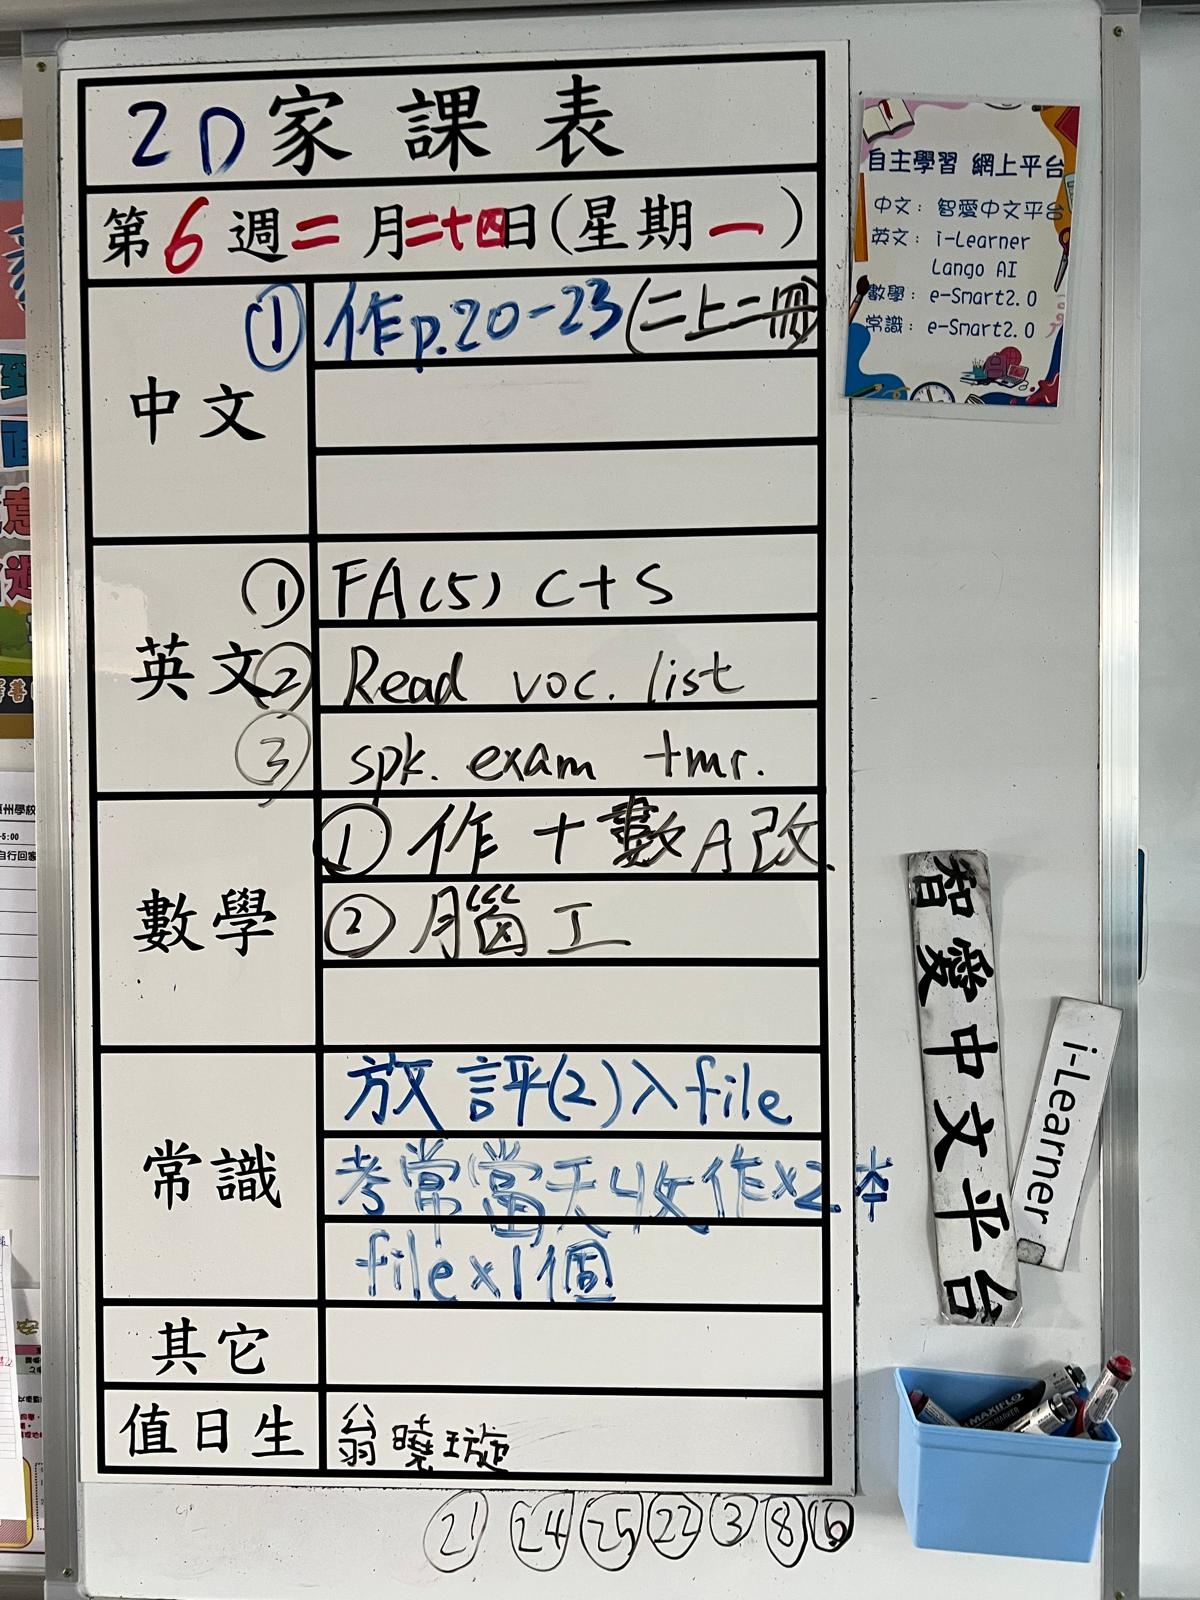 2D家課表
第6週二月二十四日(星期一)
中文
① 作p.20-23(二上二冊)
英文
① FA(5) C+S
② Read voc. list
③ spk. exam tmr.
數學
① 作+數A改
② 腦工
常識
放評(2)入file
考常當天收作x2本
filex1個
其它
值日生
翁曉璇
21 24 25 22 3 8 16
自主學習 網上平台
中文：智愛中文平台
英文：i-Learner
Lango AI
數學：e-Smart2.0
常識：e-Smart2.0
智愛中文平台
i-Learner
MAXIFLO